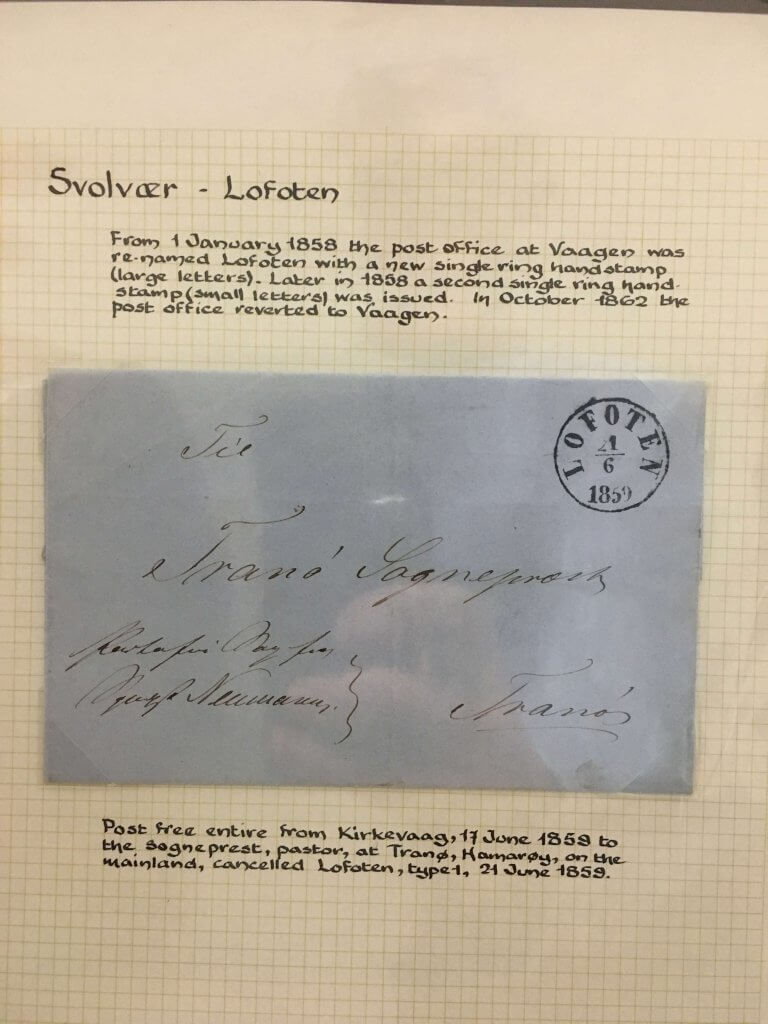 Svolvær - Lofoten
From 1 January 1858 the post office at Vaagen was
re-named Lofoten with a new single ring handstamp
(large letters). Later in 1858 a second single ring hand-
stamp (small letters) was issued. In October 1862 the
post office reverted to Vaagen.
LOFOTEN
21
6
1859
Til
Tranö Sognepræst
Neumann
Tranö
Post free entire from Kirkevaag, 17 June 1859 to
the sogneprest, pastor, at Tranø, Hamarøy, on the
mainland, cancelled Lofoten, type 1, 21 June 1859.